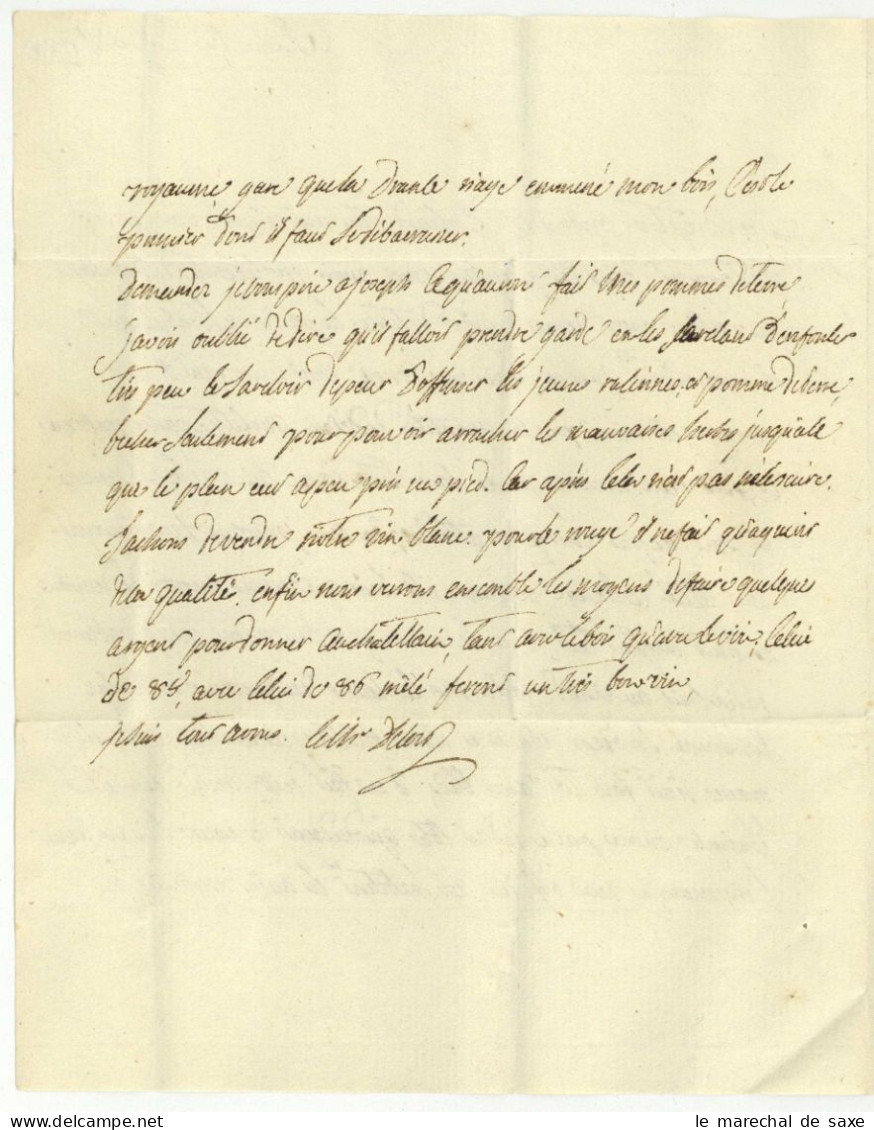 royaume, gare que la Dranse n'aye emmené mon bois, C'est le
premier dont il faut se débarrasser.
Demander je vous prie a joseph ce qu'auront fait mes pommes de terre,
j'avois oublié de dire qu'il falloit prendre garde en les sarclant d'enfoncer
très peu le sarcloir de peur d'offenser les jeunes racinnes, et pomme de terre,
becher seulement pour pouvoir arracher les mauvaises herbes jusqu'a ce
que le plan eut a peu près un pied. Car après cela n'est pas nécessaire.
Tachons de vendre nôtre vin blanc. pour le rouge il ne fait qu'aquérir
de la qualité. enfin nous verrons ensemble les moyens de faire quelques
argent pour donner au chatellain, tant avec le bois qu'avec le vin, Celui
de 85, avec Celui de 86 mêlé feront un très bon vin,
je suis tout a vous. le Ch.er
le marechal de saxe